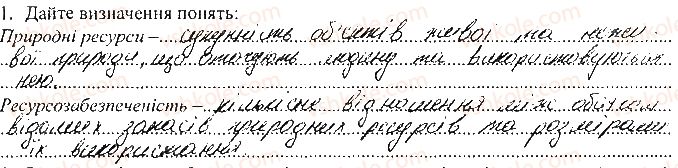 1. Дайте визначення понять:
Природні ресурси – сукупність об'єктів живої та нежи-
вої природи, що оточують людину та використовуються
нею.
Ресурсозабезпеченість – кількісне відношення між обсягом
відомих запасів природних ресурсів та розмірами
їх використання